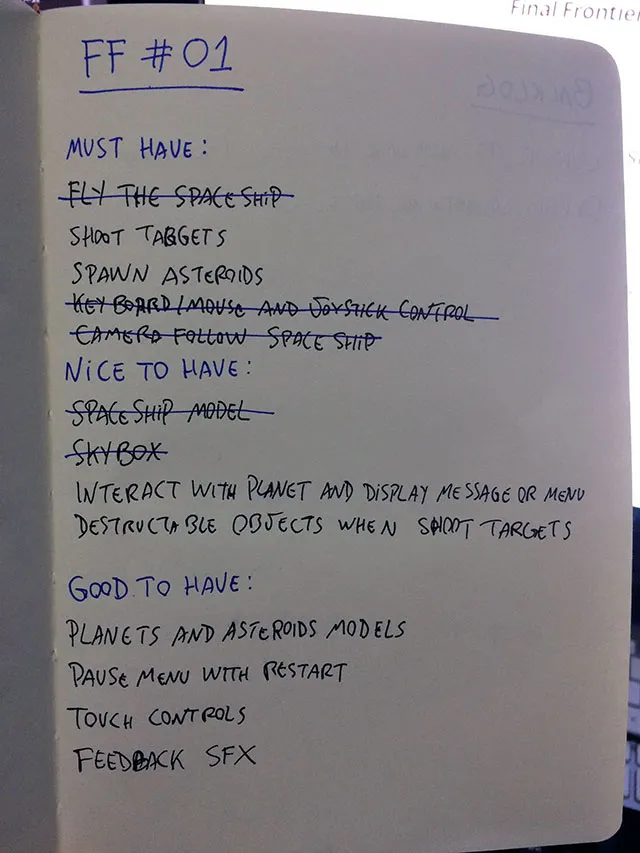 Final Frontier
FF #01
BACKLOG
MUST HAVE:
FLY THE SPACESHIP
SHOOT TARGETS
SPAWN ASTEROIDS
KEYBOARD/MOUSE AND JOYSTICK CONTROL
CAMERA FOLLOW SPACE SHIP
NiCE TO HAVE:
SPACESHiP MODEL
SKYBOX
INTERACT WITH PLANET AND DISPLAY MESSAGE OR MENU
DESTRUCTABLE OBJECTS WHEN SHOOT TARGETS
GOOD TO HAVE:
PLANETS AND ASTEROIDS MODELS
PAUSE MENU WITH RESTART
TOUCH CONTROLS
FEEDBACK SFX